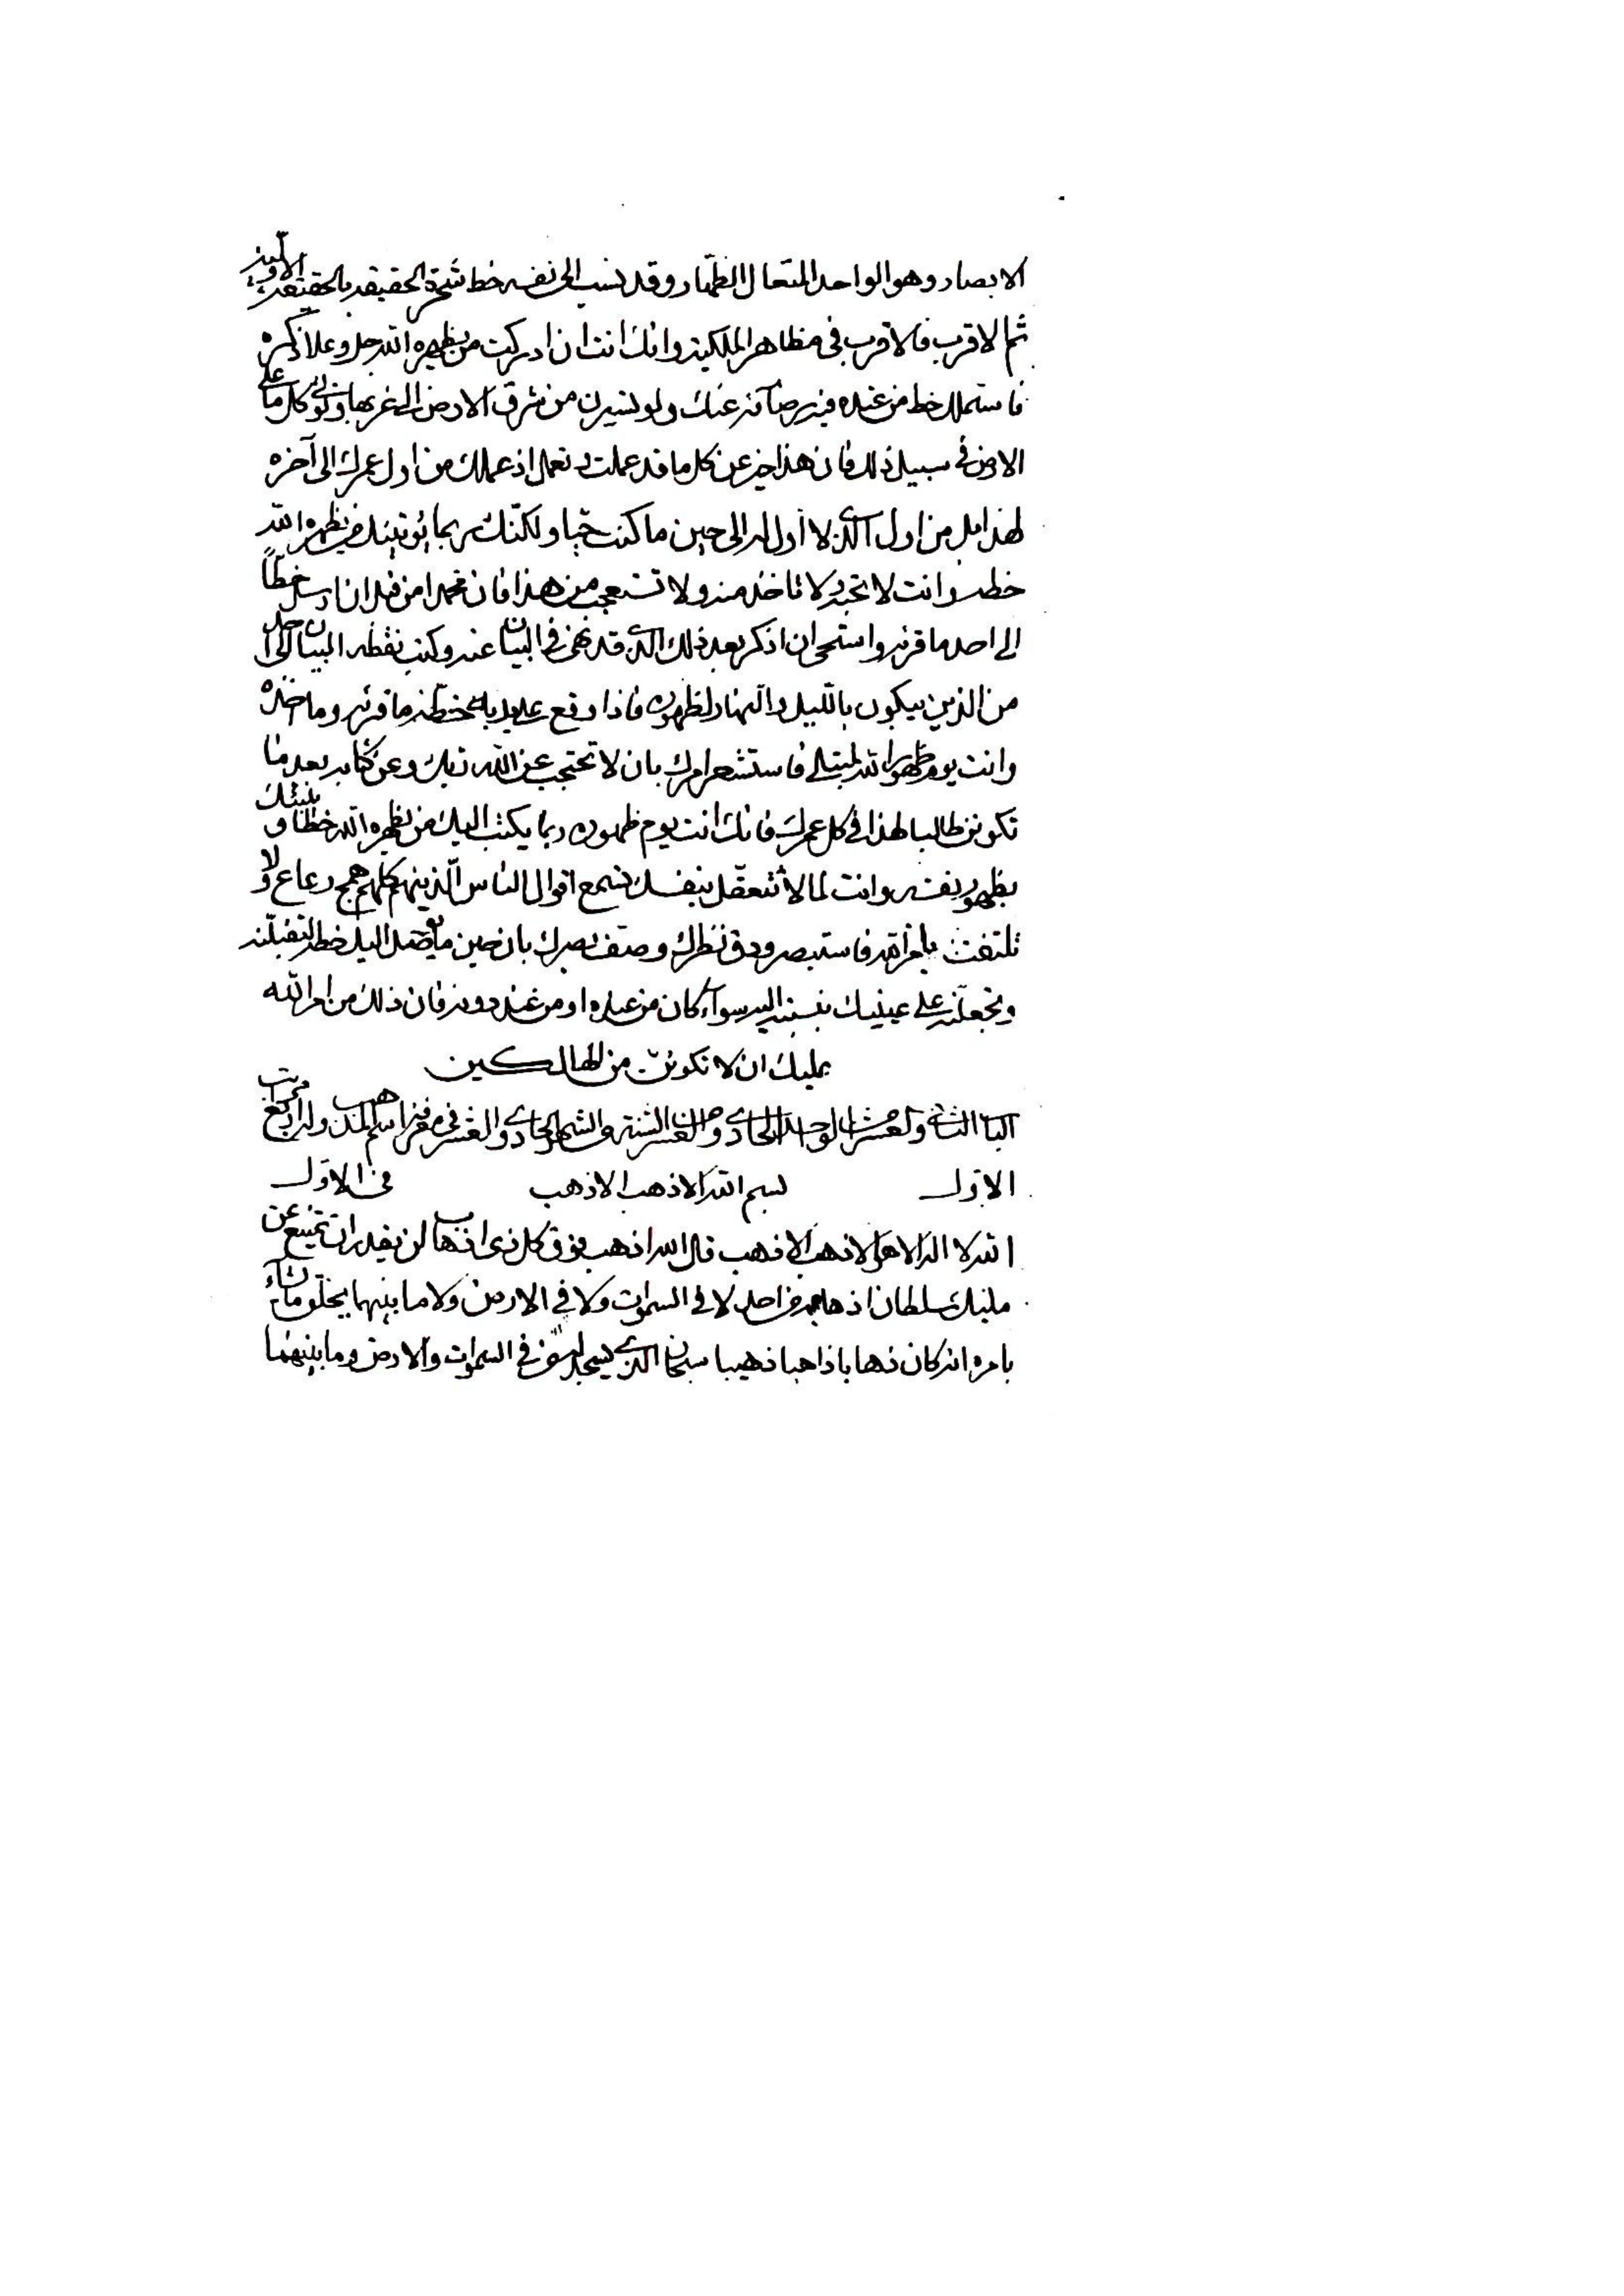 الابصار وهو الواحد المتعال الظهار وقد نسب الى نفسه خط شجرة الحقيقة بالحقيقة الاولية
ثم الاقرب فالاقرب فى مظاهر الملكية وانك انت ان ادركت من يظهره الله جل وعلا ذكره
فاستملك خط من عنده فيه رضآئه عنك ولو تسيرن من شرق الارض الى غربها وتؤتى كل ما على
الارض فى سبيل ذلك فان هذا خير عن كل ما قد عملت او تعمل اذ عملك من اول عمرك الى آخره
لهذا بل من اول الذى لا اول له الى حين ما كنت حيا ولكنك ربما يؤتينك من يظهره الله
خطه وانت لا تحبه ولا تاخذ منه ولا تستعجب من هذا فان محمدا من قبل ان ارسل خطاً
الى احد ما قرئه واستحى ان اذكر بعد ذلك الذى قد نهى فى البيان عنه وكتب نقطة البيان الى احد
من الذين يبكون بالليل والنهار لظهوره فاذا وقع على يديه خطه ما قرئه وما اخذه
وانت يوم ظهور الله لمبتلى فاستشعر امرك بان لا تحتجب عن الله ربك وعن كتابه بعد ما
تكونن طالبا لهذا فى كل عمرك فانك انت يوم ظهوره ربما يكتب اليك من يظهره الله خطا و ينبئك
بظهور نفسه وانت لما لا تتعقل بنفسك تسمع اقوال الناس الذينهم كلهم همج رعاع ولا
تلتفت بامر الله فاستبصر ودق نظرك وصف بصرك بان حين ما يصل اليك خطه لتقبلنه
وتجعلنه على عينيك بنسبته اليه سوآء كان من عنده او من عند دونه فان ذلك من امر الله
عليك ان لا تكونن من الهالكين
الباب الثانى والعشر من الواحد الحادى والعشر من السنة والشهر الحادى والعشر فى معرفة اسم المذهب وله اربع مراتب
الاول بسم الله الاذهب الاذهب فى الاول
الله لا اله الا هو الاذهب الاذهب قل الله اذهب فوق كل ذى اذهاب لن يقدر ان يمتنع عن
مليك سلطان اذهابه من احد لا فى السموات ولا فى الارض ولا ما بينهما يخلق ما يشآء
بامره انه كان ذهابا ذاهبا ذهيبا سبحان الذى يسجد له من فى السموات والارض وما بينهما